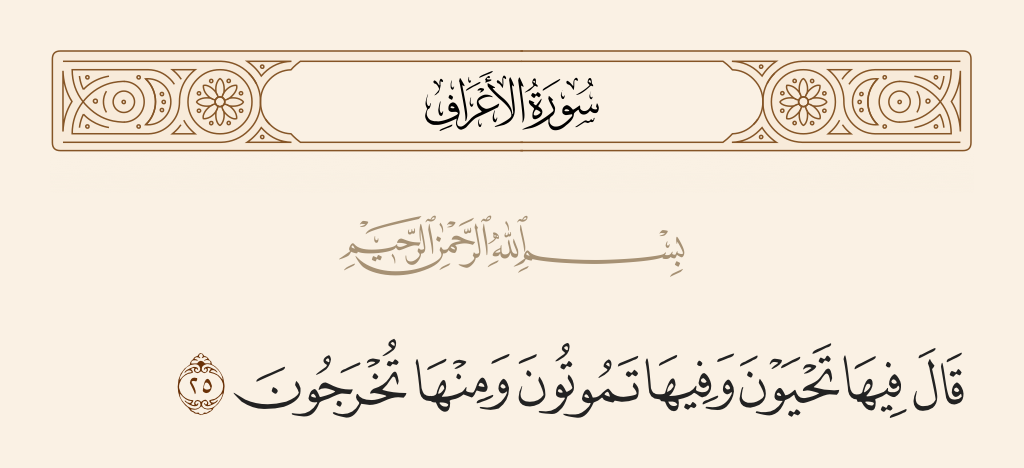 سُورَةُ الأَعْرَافِ
بِسْمِ ٱللَّهِ ٱلرَّحْمَٰنِ ٱلرَّحِيمِ
قَالَ فِيهَا تَحْيَوْنَ وَفِيهَا تَمُوتُونَ وَمِنْهَا تُخْرَجُونَ ٢٥